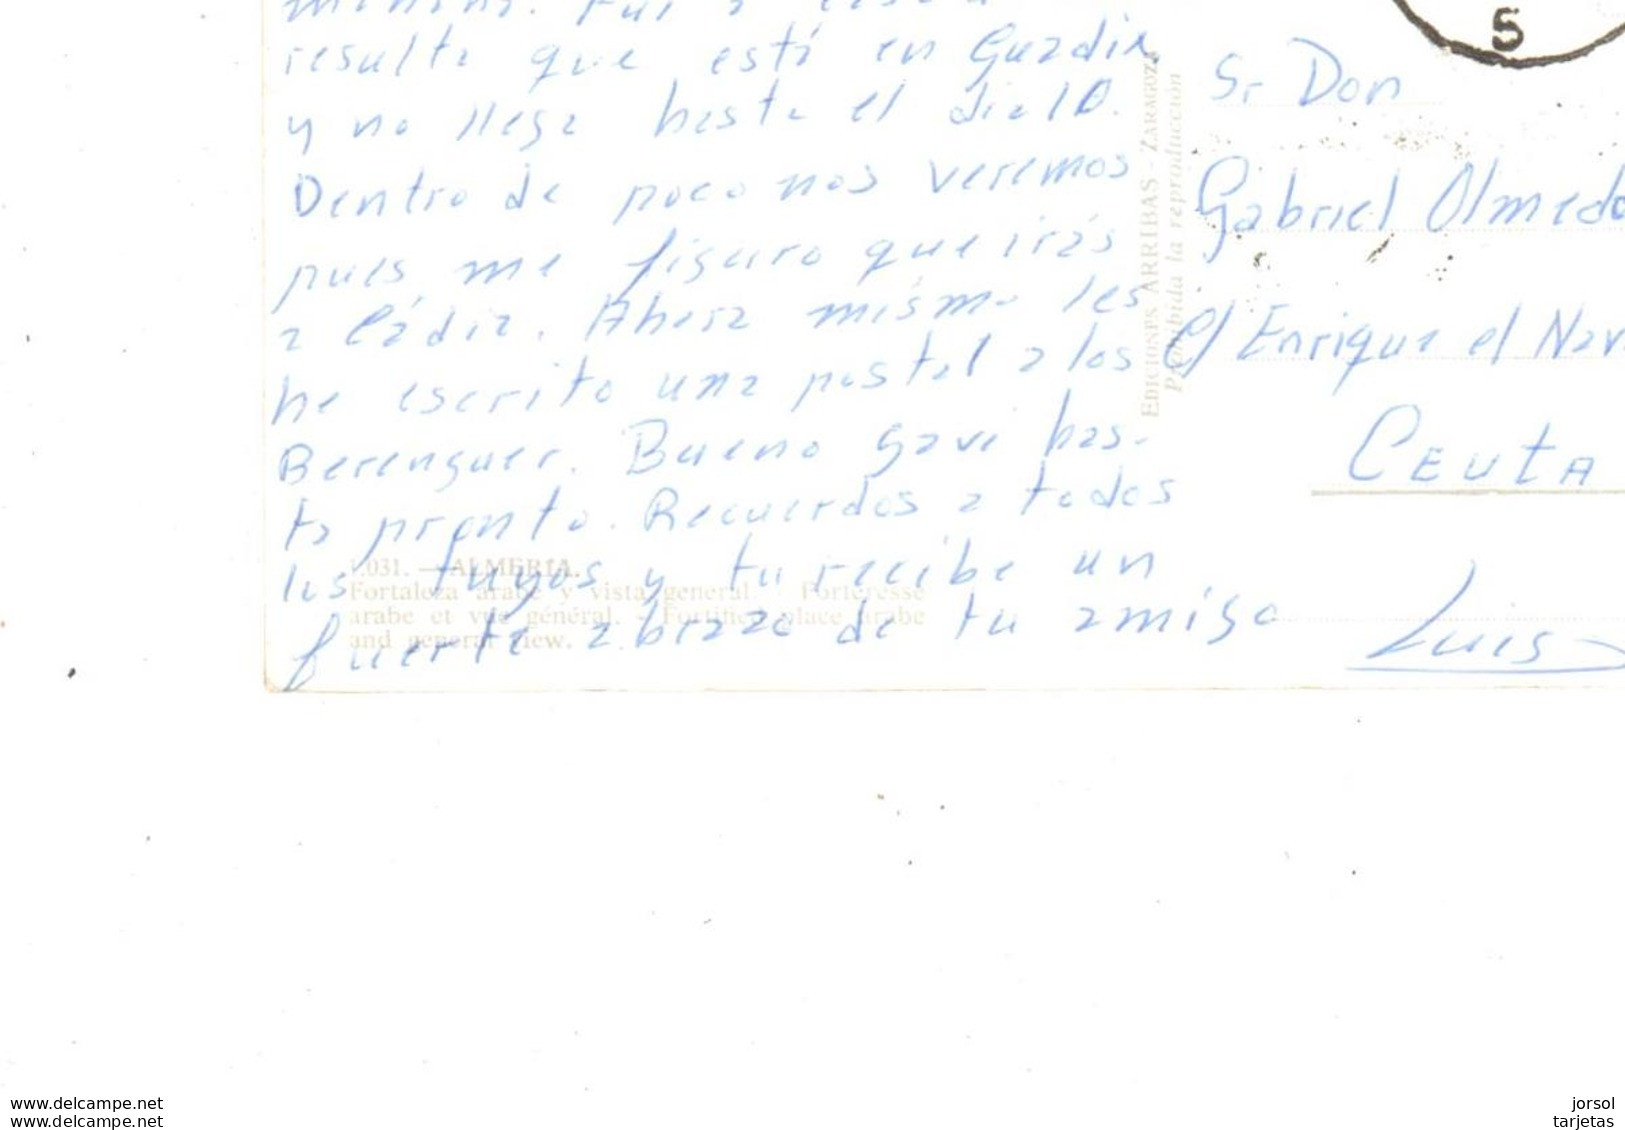 resulta que está en Guadix
y no llega hasta el dia 10.
Dentro de poco nos veremos
pues me figuro que irás
a Cádiz. Ahora mismo les
he escrito una postal a los
Berenguer. Bueno Gavi has-
ta pronto. Recuerdos a todos
los tuyos y tu recibe un
fuerte abrazo de tu amigo
Luis
EDICIONES ARRIBAS - ZARAGOZA
Prohibida la reproducción
5
Sr Don
Gabriel Olmedo
C/ Enrique el Nav
CEUTA
1.031. — ALMERIA.
Fortaleza arabe y vista general. - Forteresse
arabe et vue général. - Fortified place arabe
and general view.
www.delcampe.net
www.delcampe.net
jorsol
tarjetas